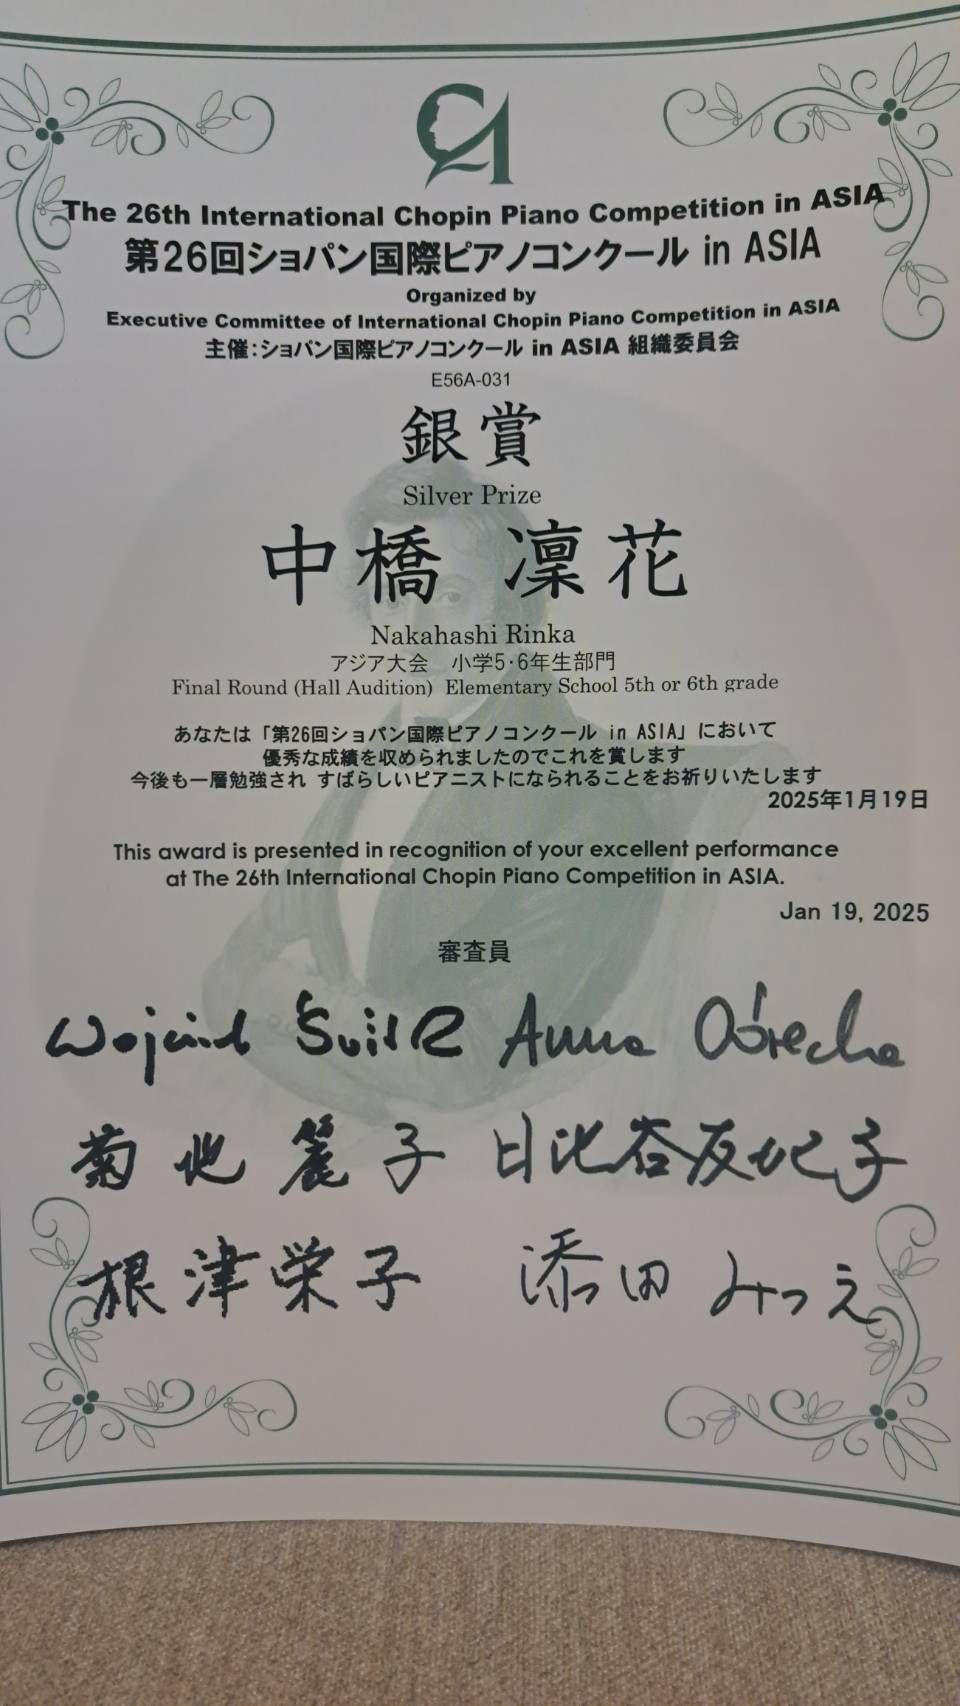 The 26th International Chopin Piano Competition in ASIA
第26回ショパン国際ピアノコンクール in ASIA
Organized by
Executive Committee of International Chopin Piano Competition in ASIA
主催:ショパン国際ピアノコンクール in ASIA 組織委員会
E56A-031
銀賞
Silver Prize
中橋 凜花
Nakahashi Rinka
アジア大会 小学5・6年生部門
Final Round (Hall Audition) Elementary School 5th or 6th grade
あなたは「第26回ショパン国際ピアノコンクール in ASIA」において
優秀な成績を収められましたのでこれを賞します
今後も一層勉強され すばらしいピアニストになられることをお祈りいたします
2025年1月19日
This award is presented in recognition of your excellent performance
at The 26th International Chopin Piano Competition in ASIA.
Jan 19, 2025
審査員
Anna
菊地 麗子 日比谷友妃子
根津栄子 添田みつえ